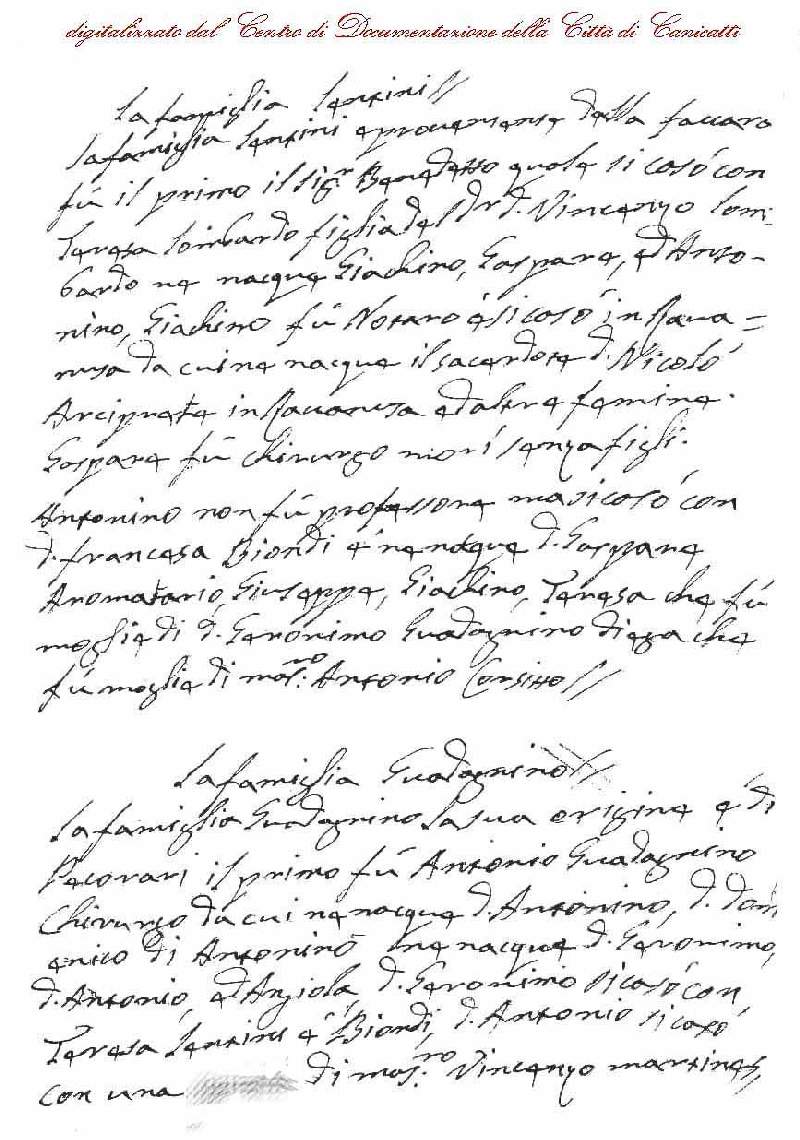 digitalizzato dal Centro di Documentazione della Città di Canicattì
La famiglia Lentini//
La famiglia Lentini è proveniente della faccara
fù il primo il sig.r Benedetto quale si casó con
Teresa Lombardo figlia del Dr d. Vincenzo Lom:
bardo ne nacque Giachino, Gaspare, ed Anto-
nino, Giachino fù Notaro è si casó in Rava=
nusa da cui ne nacque il sacerdote d. Nicoló
Arciprete in Ravanusa ed altre femine.
Gaspare fù chirurgo morì senza figli.
Antonino non fù professore ma si casó con
d. francesa Biondi é ne nacque d. Gaspare
Aromatario, Giuseppe, Giachino, Teresa che fù
moglie di d. Geronimo Guadagnino diega che
fù moglie di mas.ro Antonio Corsitto//
La famiglia Guadagnino//
La famiglia Guadagnino La sua origine é di
Pecorari il primo fù Antonio Guadagnino
Chirurgo da cui ne nacque d. Antonino, d. dom
enico di Antonino ne nacque d. Geronimo,
d. Antonio, ed Angiola, d. Geronimo si casó con
Teresa Lentini é Biondi, d. Antonio si casó
con una di mas.ro Vincenzo martines,